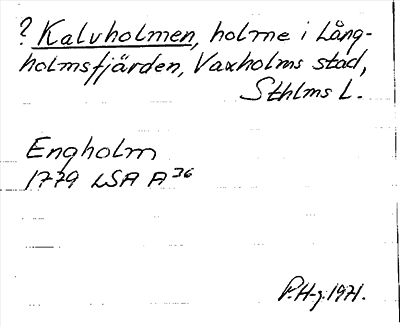 ? Kalvholmen, holme i Lång-
holmsfjärden, Vaxholms stad,
Sthlms L.
Engholm
1779 LSA A36
P.H-g. 1971.